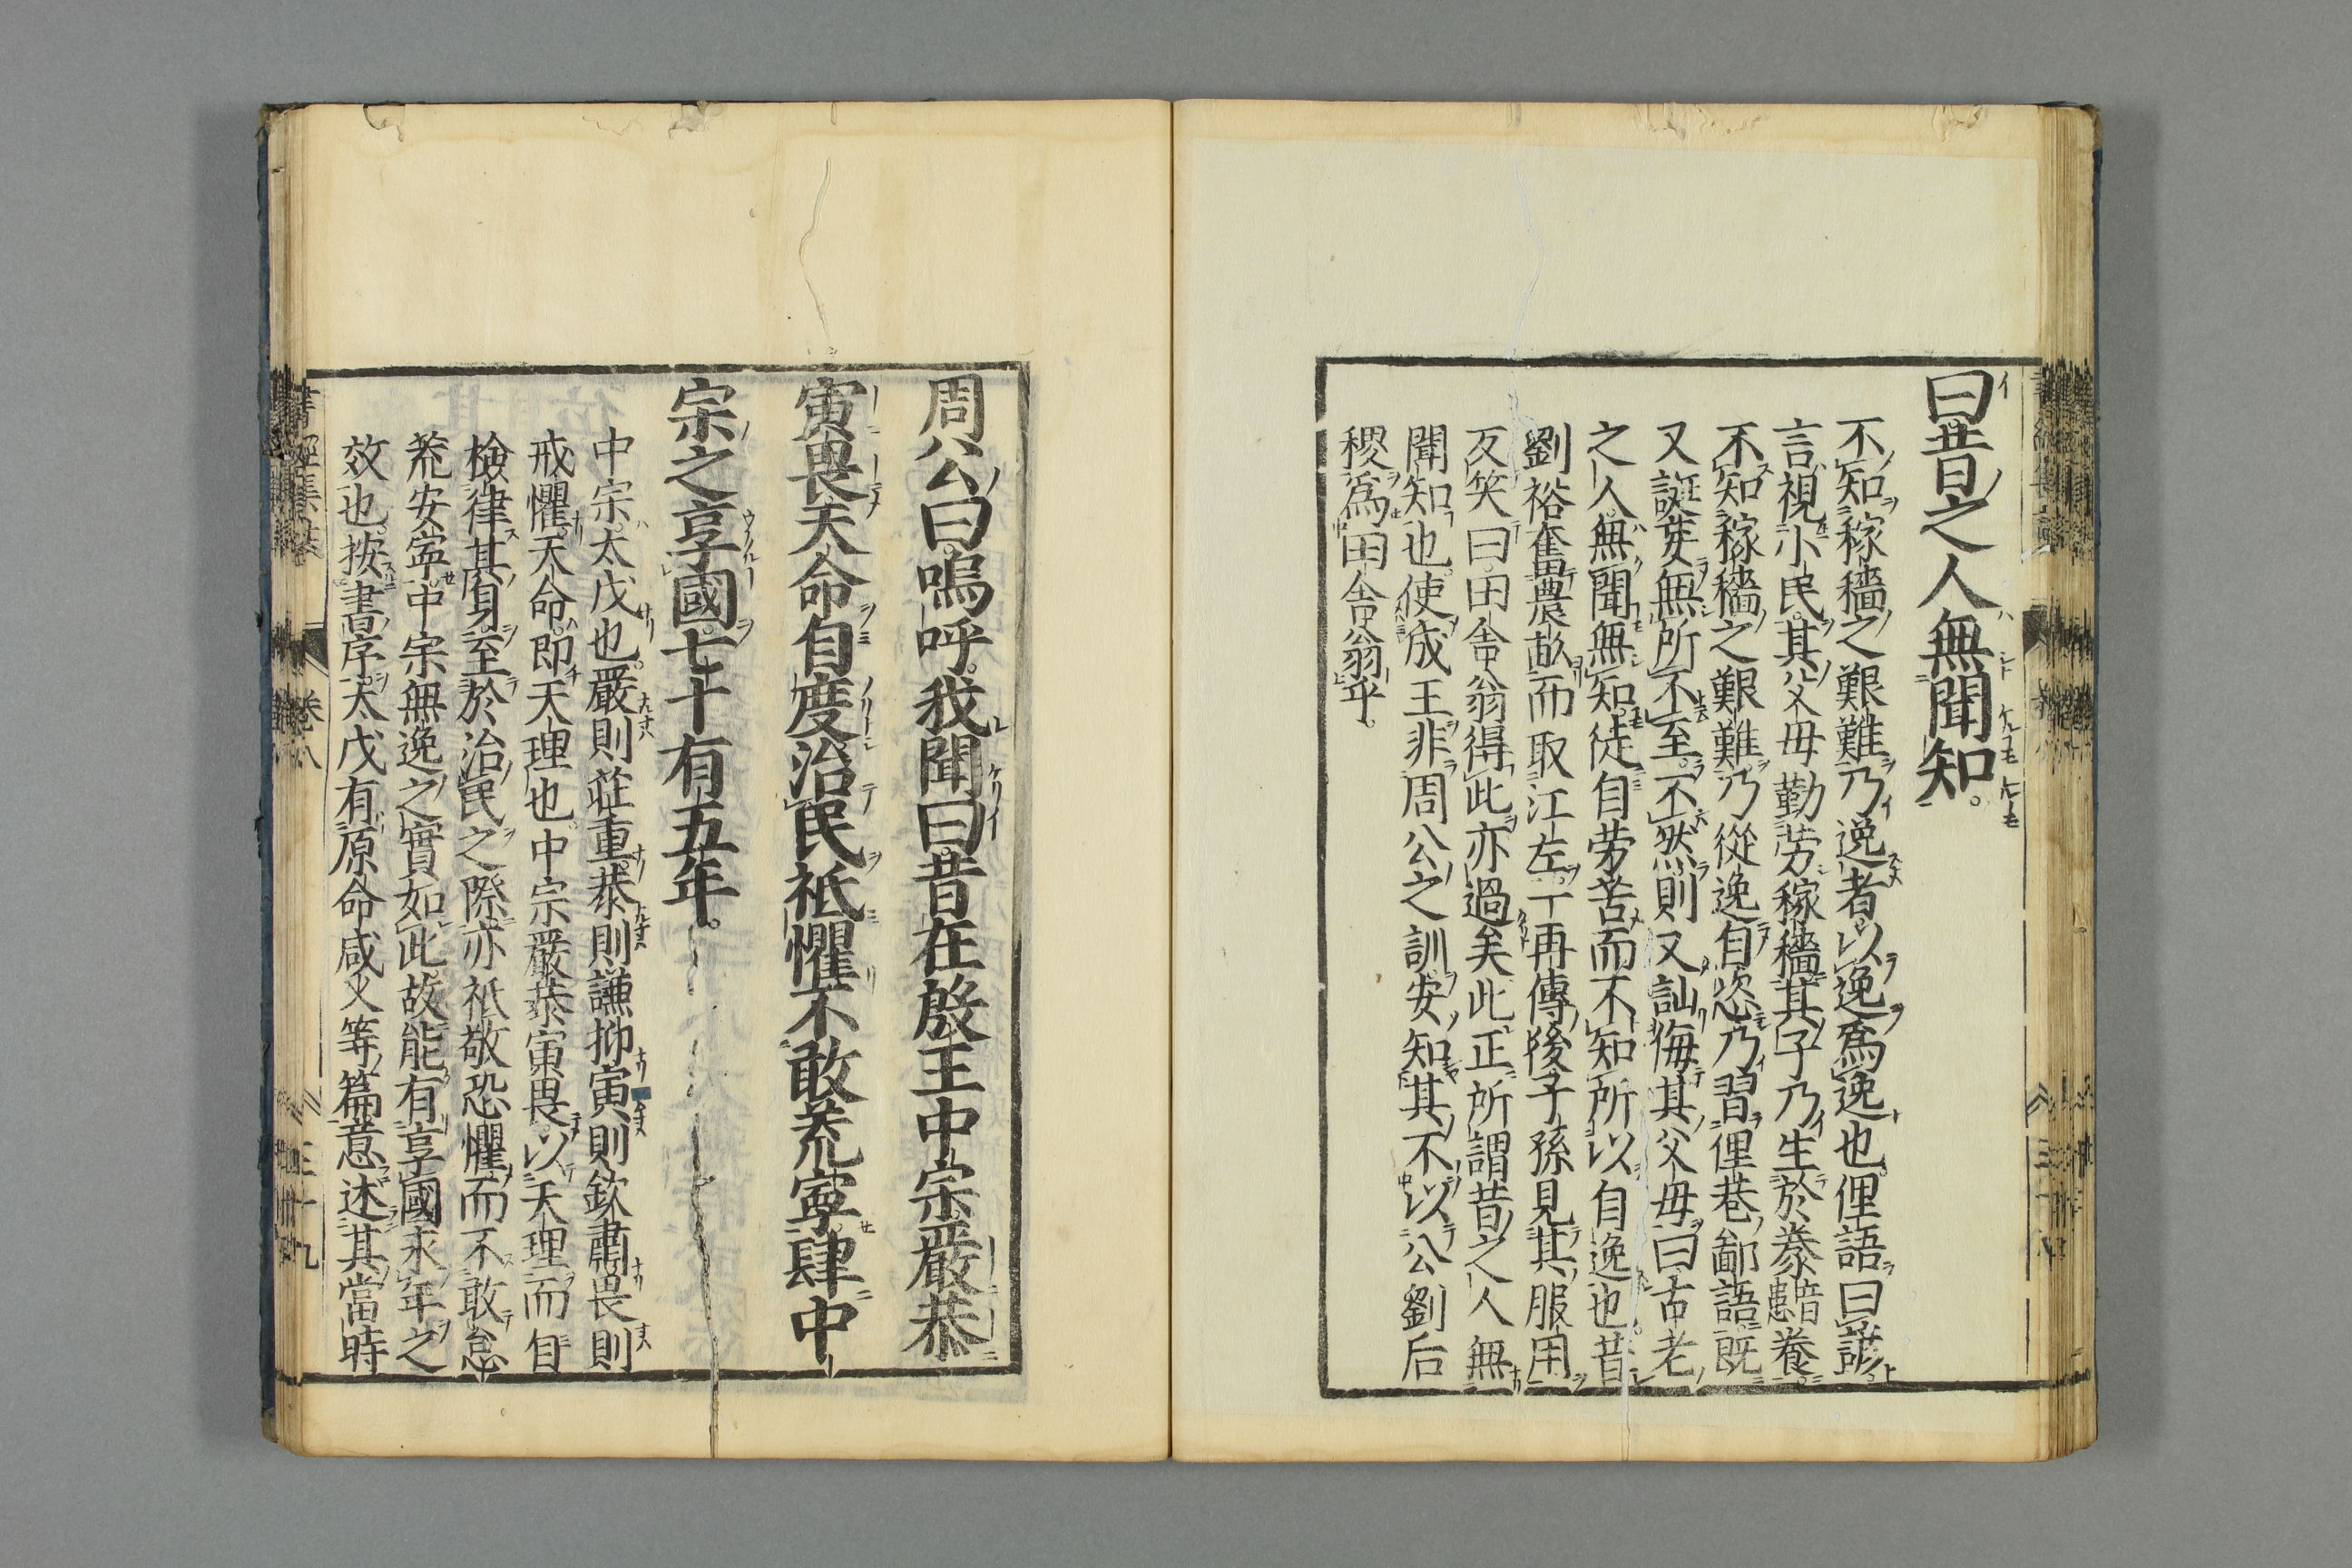 曰昔之人無聞知。
不知稼穡之艱難乃逸者。以逸爲逸也。俚語曰諺
言視小民。其父毋勤劳稼穡其子乃生於豢養。
不知稼穡之艱難。乃從逸自恣乃習俚巷鄙語既
又誕妄無所不至。不然則又訕侮其父毋曰古老
之人。無聞無知。徒自劳苦而不知所以自逸也。昔
劉裕奮農畝而取江左。一再傳後子孫見其服用
反笑曰。田舍翁得此亦過矣此正所謂昔之人無
聞知也。使成王非周公之訓。安知其不以公劉后
稷爲田舍翁乎。
周公曰。嗚呼。我聞曰。昔在殷王中宗。嚴恭
寅畏天命自度治民祗懼不敢荒寧。肆中
宗之享國。七十有五年。
中宗。太戊也。嚴則莊重。恭則謙抑寅則欽肅。畏則
戒懼。天命。即天理也。中宗嚴恭寅畏。以天理而自
檢律其身。至於治民之際。亦祗敬恐懼而不敢怠
荒安寧。中宗無逸之實如此。故能有享國永年之
效也。按書序。太戊有原命咸乂等篇意述其當時
書經集註 卷八 三十九